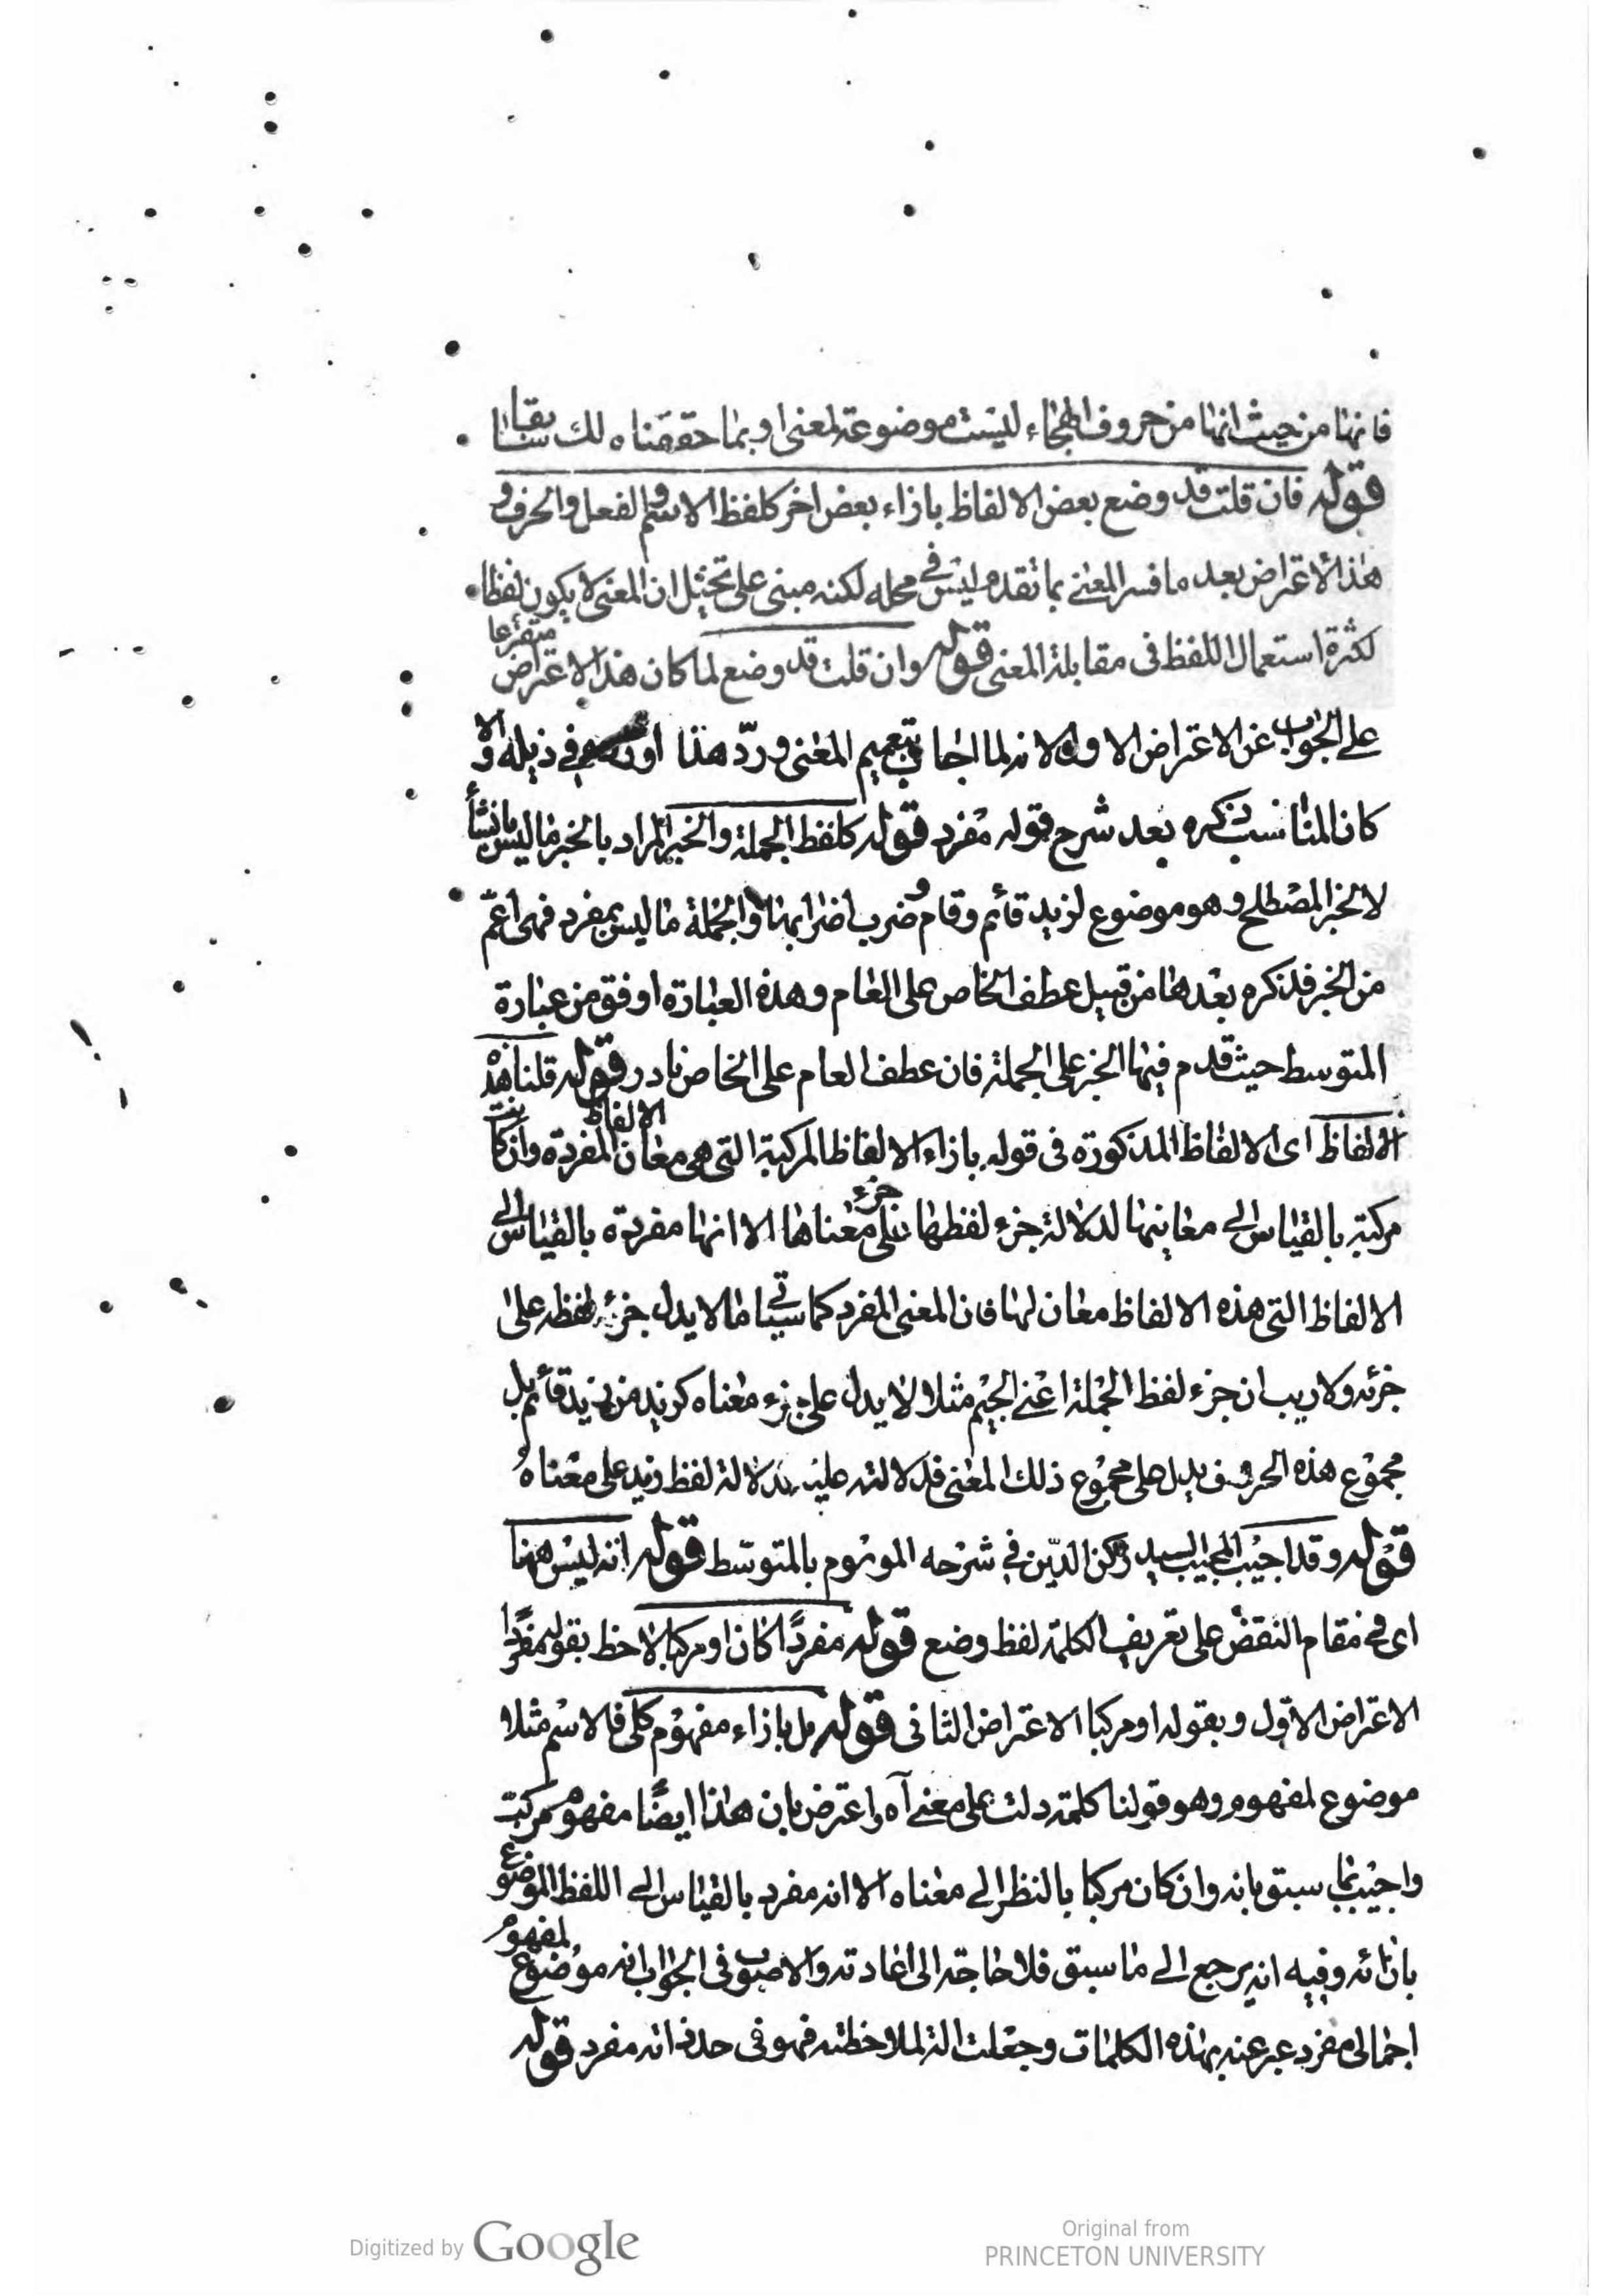 فانها من حيث انها من حروف الهجاء ليست موضوعة لمعنى او بما حققناه لك سابقا
قوله فان قلت قد وضع بعض الالفاظ بازاء بعض اخر كلفظ الاسم والفعل والحرف و
هذا الاعتراض بعد ما فسر المعنى بما تقدم ليس فى محله لكنه مبنى على تخيل ان المعنى لا يكون لفظا
لكثرة استعمال اللفظ فى مقابلة المعنى قوله وان قلت قد وضع لما كان هذا الاعتراض متفرعا
على الجواب عن الاعتراض الاول لانه لما اجاب بتعميم المعنى ورد هذا اورده فى ذيله والا
كان المناسب ذكره بعد شرح قوله مفرد قوله كلفظ الجملة والخبر المراد بالخبر ما ليس بانشأ
لا الخبر المصطلح وهو موضوع لزيد قائم وقام وضرب اضرابها والجملة ما ليس بمفرد فهى اعم
من الخبر فذكره بعدها من قبيل عطف الخاص على العام وهذه العبارة اوفق من عبارة
المتوسط حيث قدم فيها الخبر على الجملة فان عطف العام على الخاص نادر قوله قلنا هذه
الالفاظ اى الالفاظ المذكورة فى قوله بازاء الالفاظ المركبة التى هى معان الالفاظ المفردة وان كانت
مركبة بالقياس الى معانيها لدلالة جزء لفظها على جزء معناها الا انها مفردة بالقياس الى
الالفاظ التى هذه الالفاظ معان لها فان المعنى المفرد كما سيأتى ما لا يدل جزء لفظه على
جزئه ولا ريب ان جزء لفظ الجملة اعنى الجيم مثلا لا يدل على جزء معناه كزيد من زيد قائم بل
مجموع هذه الحروف يدل على مجموع ذلك المعنى فدلالته عليه كدلالة لفظ زيد على معناه
قوله وقد اجيب المجيب السيد ركن الدين فى شرحه الموسوم بالمتوسط قوله انه ليس هنا
اى فى مقام النقض على تعريف الكلمة لفظ وضع قوله مفردا كان او مركبا لاحظ بقوله مفردا
الاعتراض الاول وبقوله او مركبا الاعتراض الثانى قوله بل بازاء مفهوم كلى فالاسم مثلا
موضوع لمفهوم وهو قولنا كلمة دلت على معنى آه واعترض بان هذا ايضا مفهوم مركب
واجيب بما سبق بانه وان كان مركبا بالنظر الى معناه الا انه مفرد بالقياس الى اللفظ الموضوع
بازائه وفيه انه يرجع الى ما سبق فلا حاجة الى اعادته والاصوب فى الجواب انه موضوع لمفهوم
اجمالى مفرد عبر عنه بهذه الكلمات وجعلت الة لملاحظته فهو فى حد ذاته مفرد قوله
Digitized by Google
Original from
PRINCETON UNIVERSITY